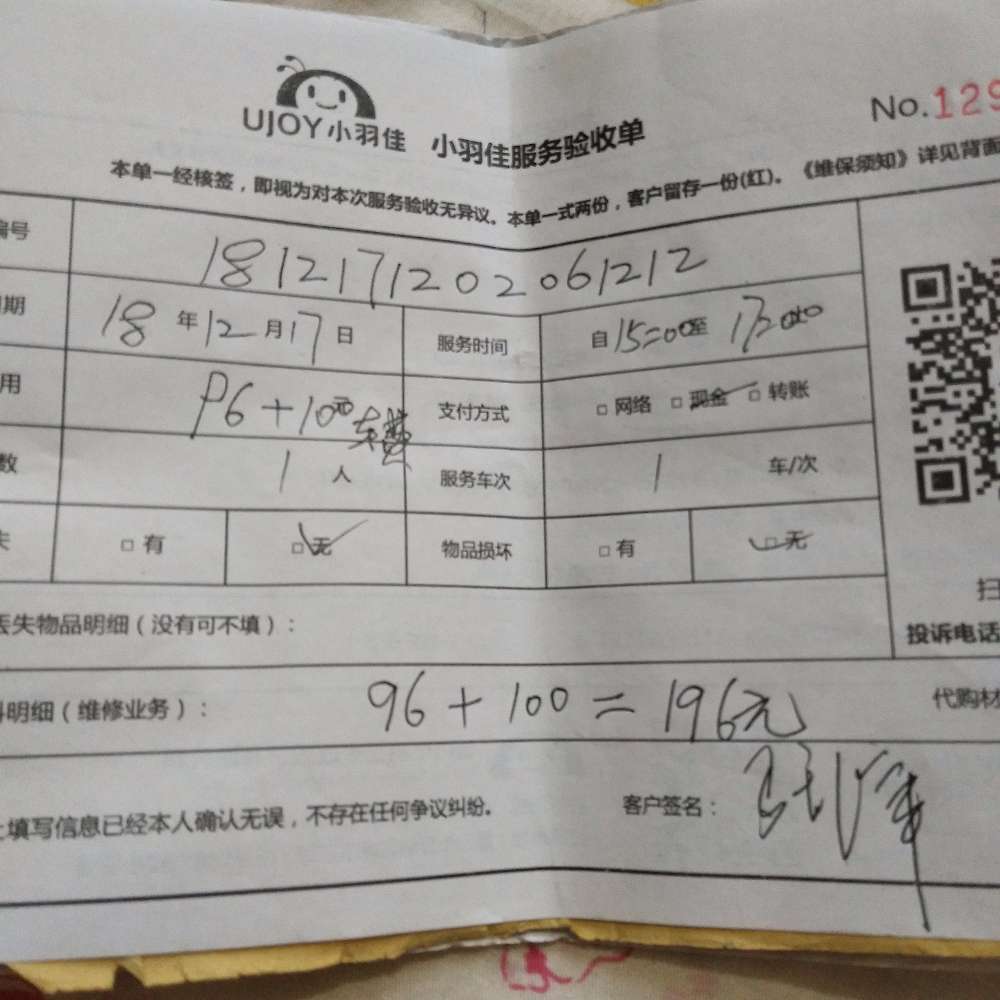 UJOY小羽佳 小羽佳服务验收单 No.129
本单一经核签，即视为对本次服务验收无异议。本单一式两份，客户留存一份(红)。《维保须知》详见背面
编号 1812171202061212
期 18年12月17日 服务时间 自15:00至17:00
用 96+10元车费 支付方式 □网络 □现金 □转账
数 1人 服务车次 1 车/次
失 □有 □无 物品损坏 □有 □无
丢失物品明细（没有可不填）：
扫
投诉电话
料明细（维修业务）： 96+100=196元 代购材
上填写信息已经本人确认无误，不存在任何争议纠纷。 客户签名：